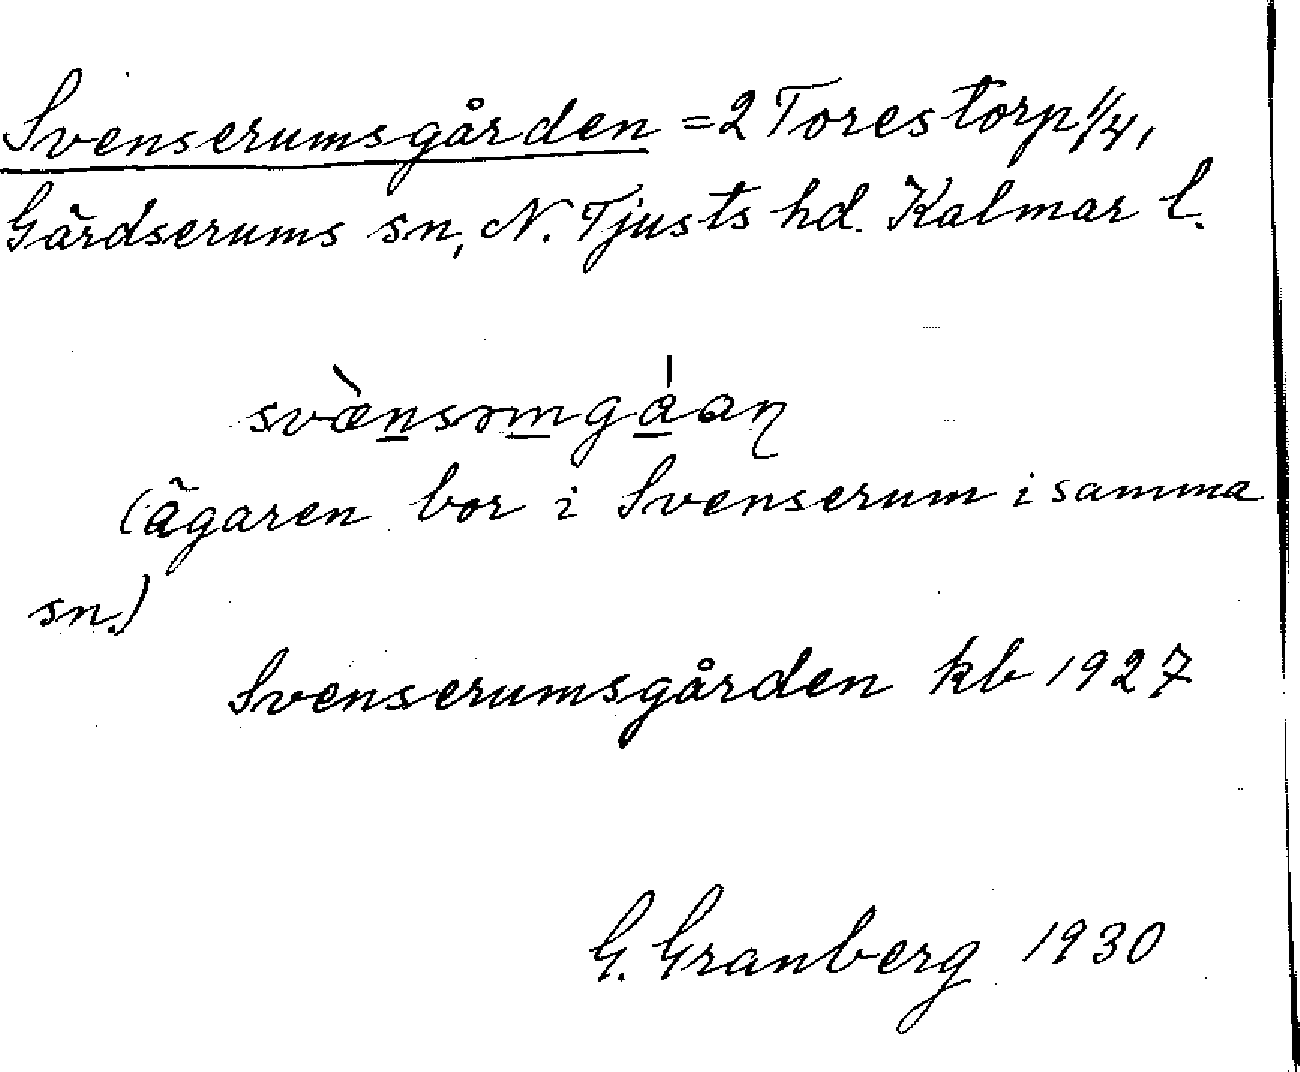 Svenserumsgården = 2 Torestorp 1/4,
Gärdserums sn, N. Tjusts hd. Kalmar l.
svæ̀nsəmgáaɳ
(ägaren bor i Svenserum i samma
sn.)
Svenserumsgården kb 1927
G. Granberg 1930